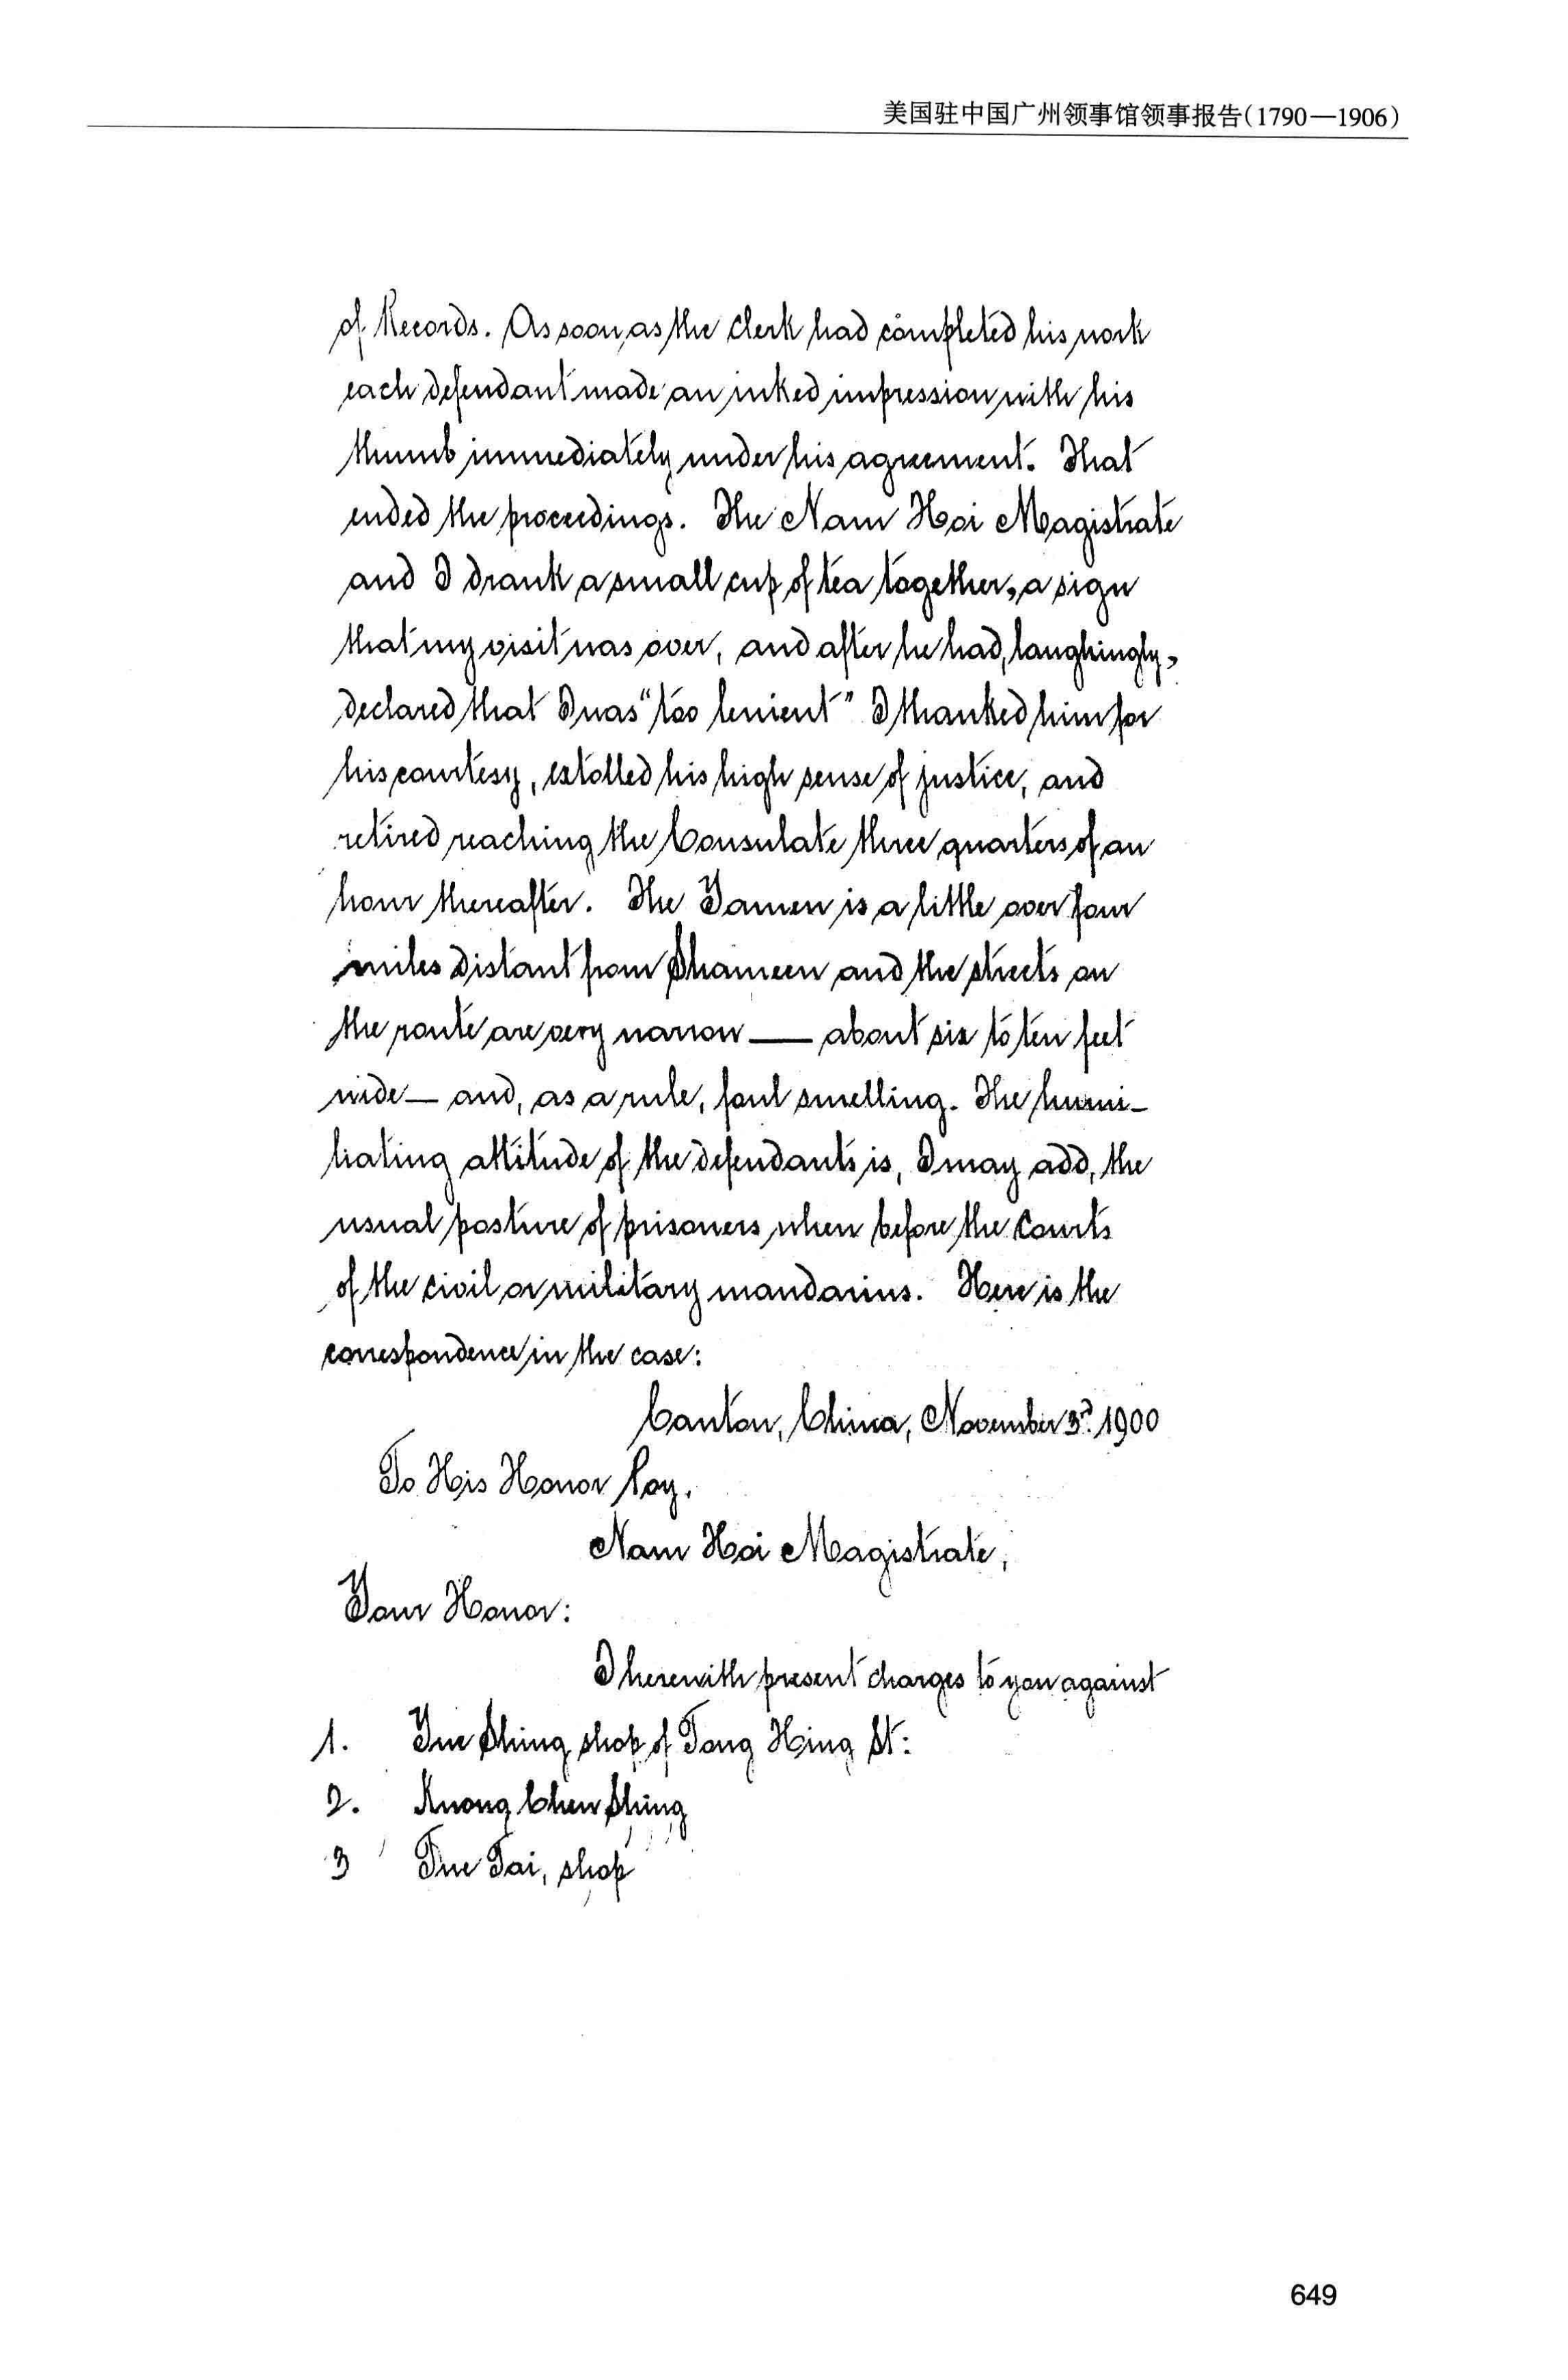 美国驻中国广州领事馆领事报告(1790—1906)
of Records. As soon as the clerk had completed his work
each defendant made an inked impression with his
thumb immediately under his agreement. That
ended the proceedings. The Nam Hoi Magistrate
and I drank a small cup of tea together, a sign
that my visit was over, and after he had, laughingly,
declared that I was "too lenient" I thanked him for
his courtesy, extolled his high sense of justice, and
retired reaching the Consulate three quarters of an
hour thereafter. The Yamen is a little over four
miles distant from Shameen and the streets on
the route are very narrow — about six to ten feet
wide — and, as a rule, foul smelling. The humi-
liating attitude of the defendants is, I may add, the
usual posture of prisoners when before the Courts
of the civil or military mandarins. Here is the
correspondence in the case:
Canton, China, November 3d. 1900
To His Honor Poy.
Nam Hoi Magistrate,
Your Honor:
I herewith present charges to you against
1. Yue Shing shop of Tong Hing St:
2. Kwong Chen Shing
3 Tue Tai, shop
649